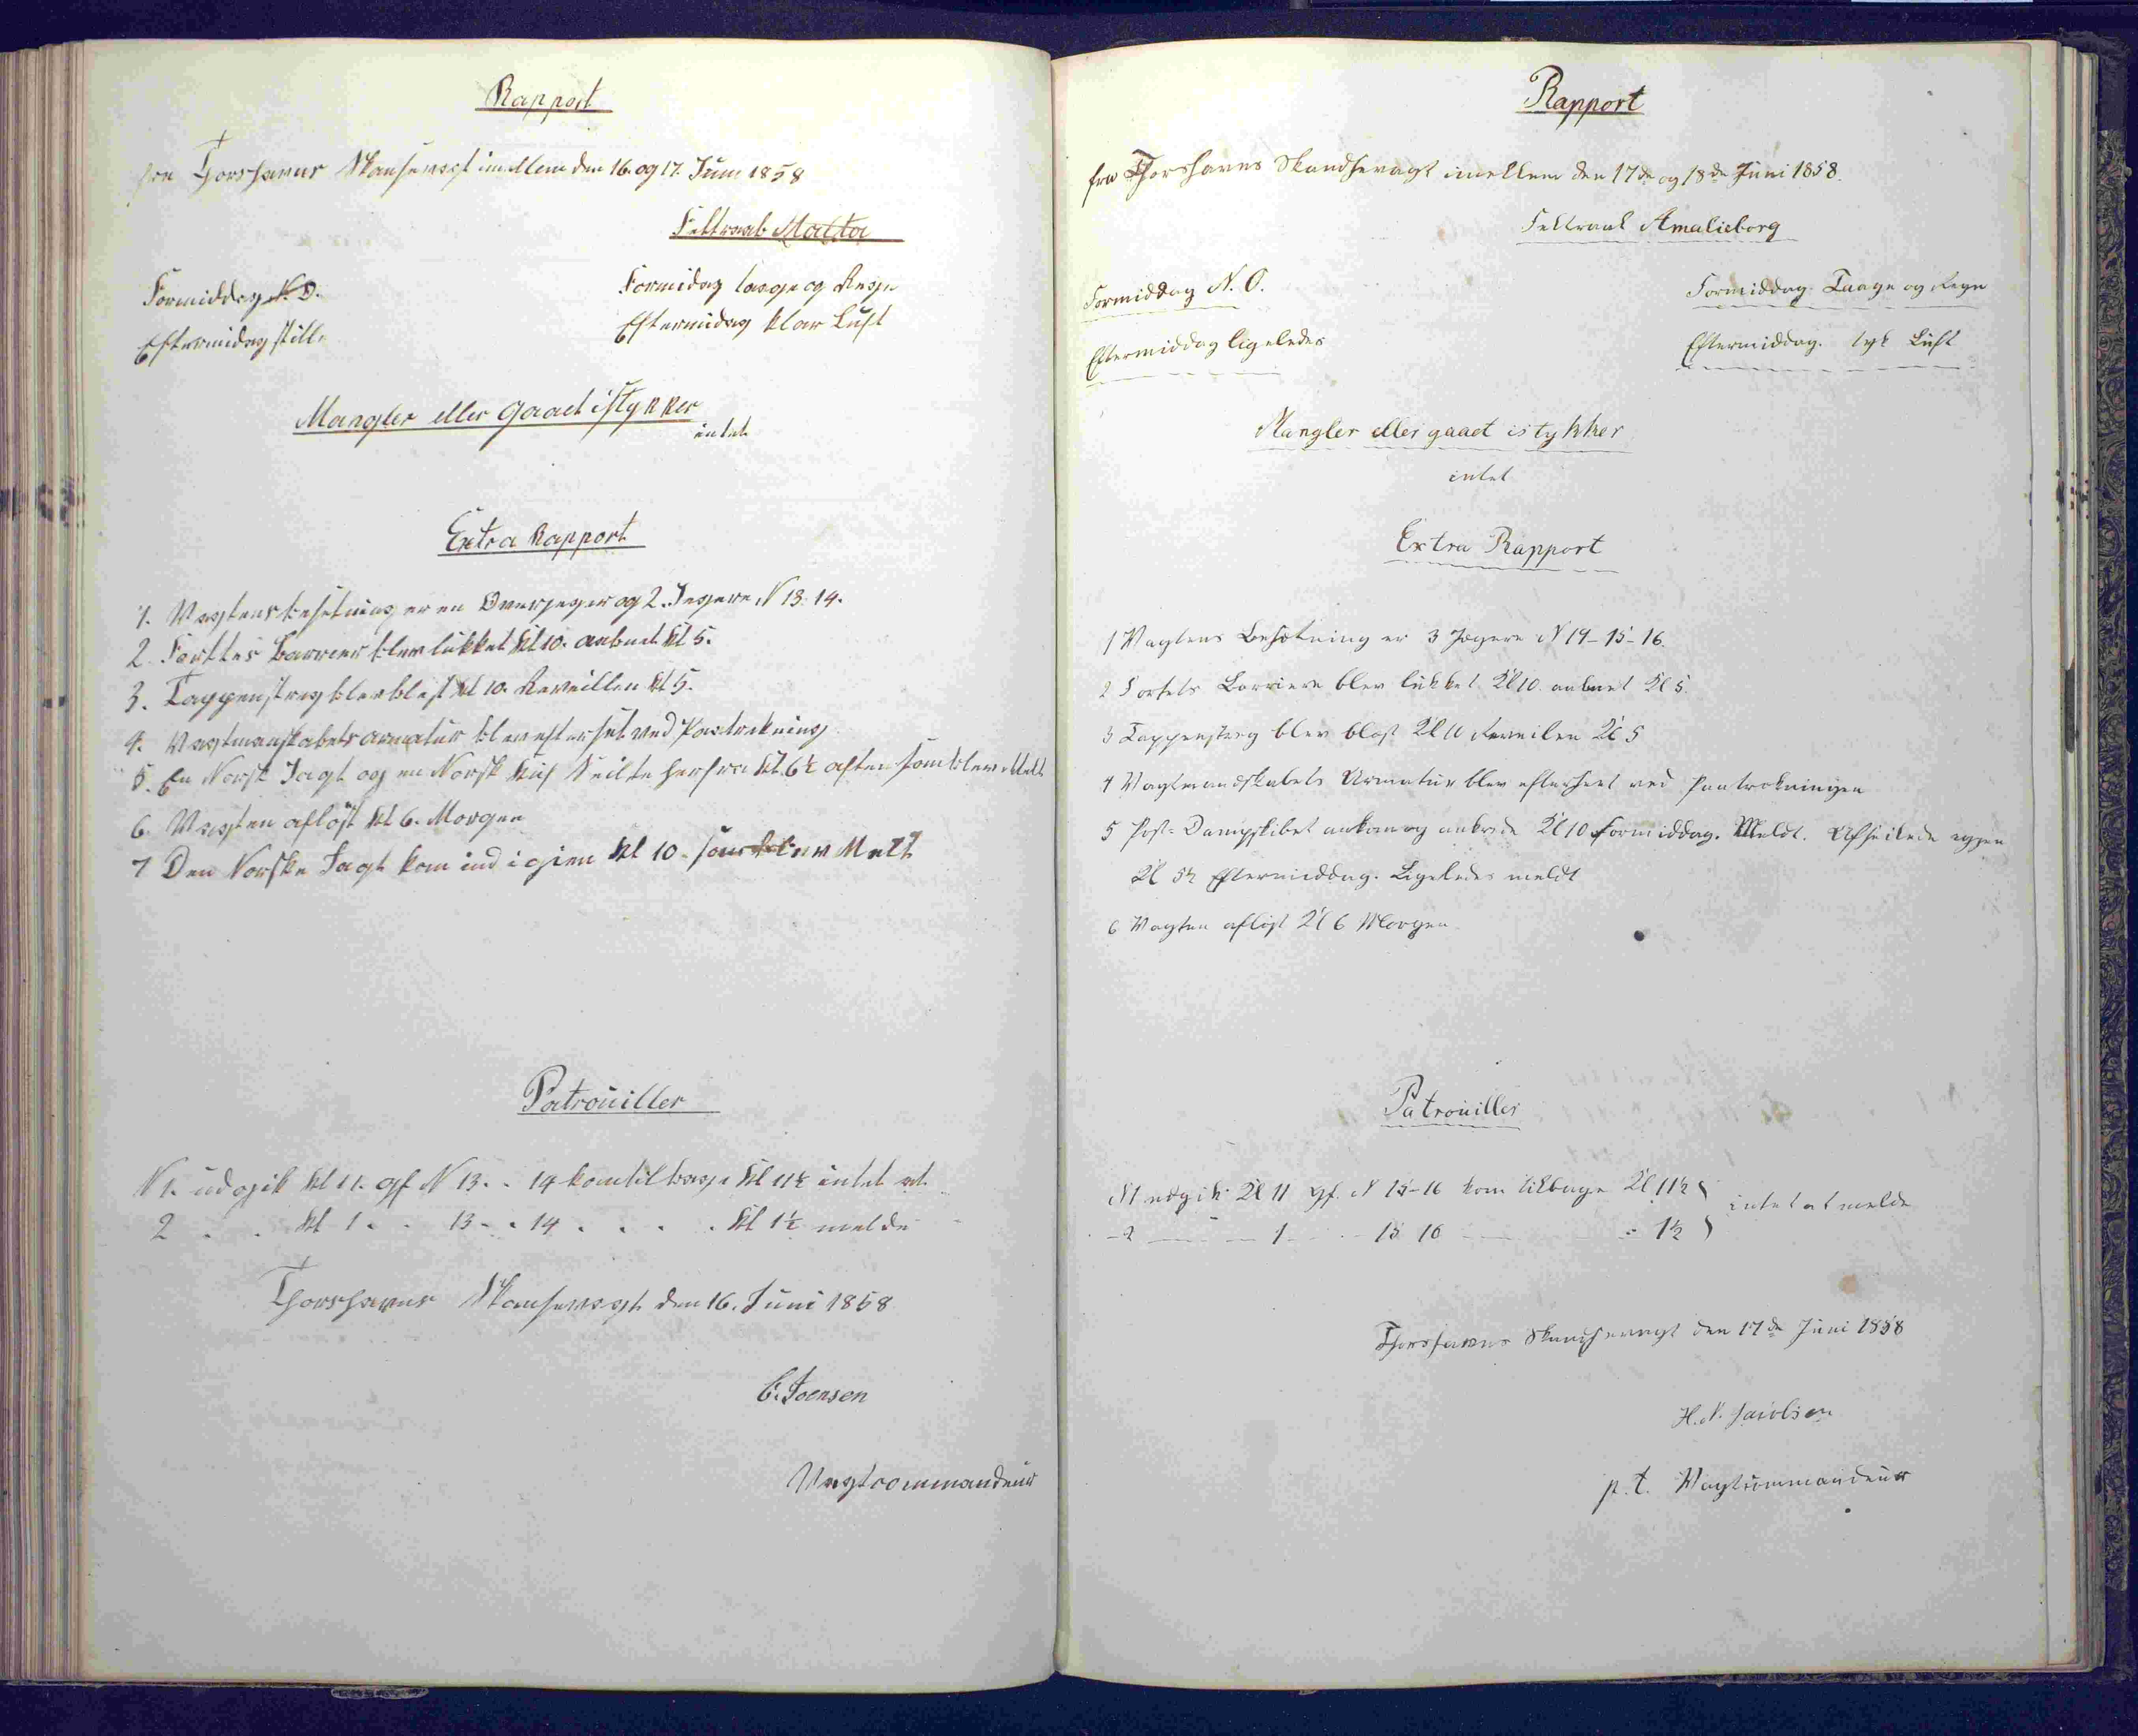 Rapport
fra Thorshavns Skansevagt imellem den 16. og 17. Juni 1858
Feltraab Malta
Formiddag N. O.
Formidag taage og Regn
Eftermidag stille
Eftermidag klar Luft
Mangler eller gaaet istykker
intet
Extra Rapport
1. Vagtens besetning er en Overjeger og 2. Jegere N 13. 14.
2. Forttes Barrier blev lukket Kl 10. aabnet Kl 5.
3. Tappenstreg blev blest Kl 10. Reveillen Kl 5.
4. Vagtmanskabets armatur blev efterset ved Paatrekning
5. En Norsk Jagt og en Norsk Kuf Seilte herfra Kl. 6½ aften som blev Meldt
6. Vagten afløst Kl 6. Morgen
7 Den Norske Jagt kom ind igien Kl 10. som blev Melt
Patrouiller
N 1. udgik Kl 11. gf N 13. . 14 kom tilbage Kl 11½ intet at
2 . . Kl 1 . . 13 . . 14 . . . . Kl 1½ melde
Thorshavns Skansevagt den 16. Juni 1858
C. Joensen
Vagtcommandeur
Rapport
fra Thorshavns Skandsevagt imellem den 17de og 18de Juni 1858.
Feltraab Amalieborg
Formiddag N. O.
Formiddag. Taage og Regn
Eftermiddag ligeledes
Eftermiddag. tyk Luft
Mangler eller gaaet istykker
intet
Extra Rapport
1 Vagtens Besætning er 3 Jægere N 19-15-16.
2 Fortets Barriere blev lukket Kl 10 aabnet Kl 5.
3 Tappenstreg blev blæst Kl 10 Reveilen Kl 5
4 Vagtmandskabets Armatur blev efterseet ved Paatrækningen
5 Post-Dampskibet ankom og ankrede Kl 10 Formiddag. Meldt. Afseilede igjen
Kl 5½ Eftermiddag. Ligeledes meldt
6 Vagten afløst Kl 6 Morgen
Patrouiller
N 1 udgik Kl 11 gf. N 15-16 kom tilbage Kl 11½ } intet at melde
- 2 — — 1 - - - 15 16 — - 1½ }
Thorshavns Skandsevagt den 17de Juni 1858
H. N. Jacobsen
p. t. Vagtcommandeur